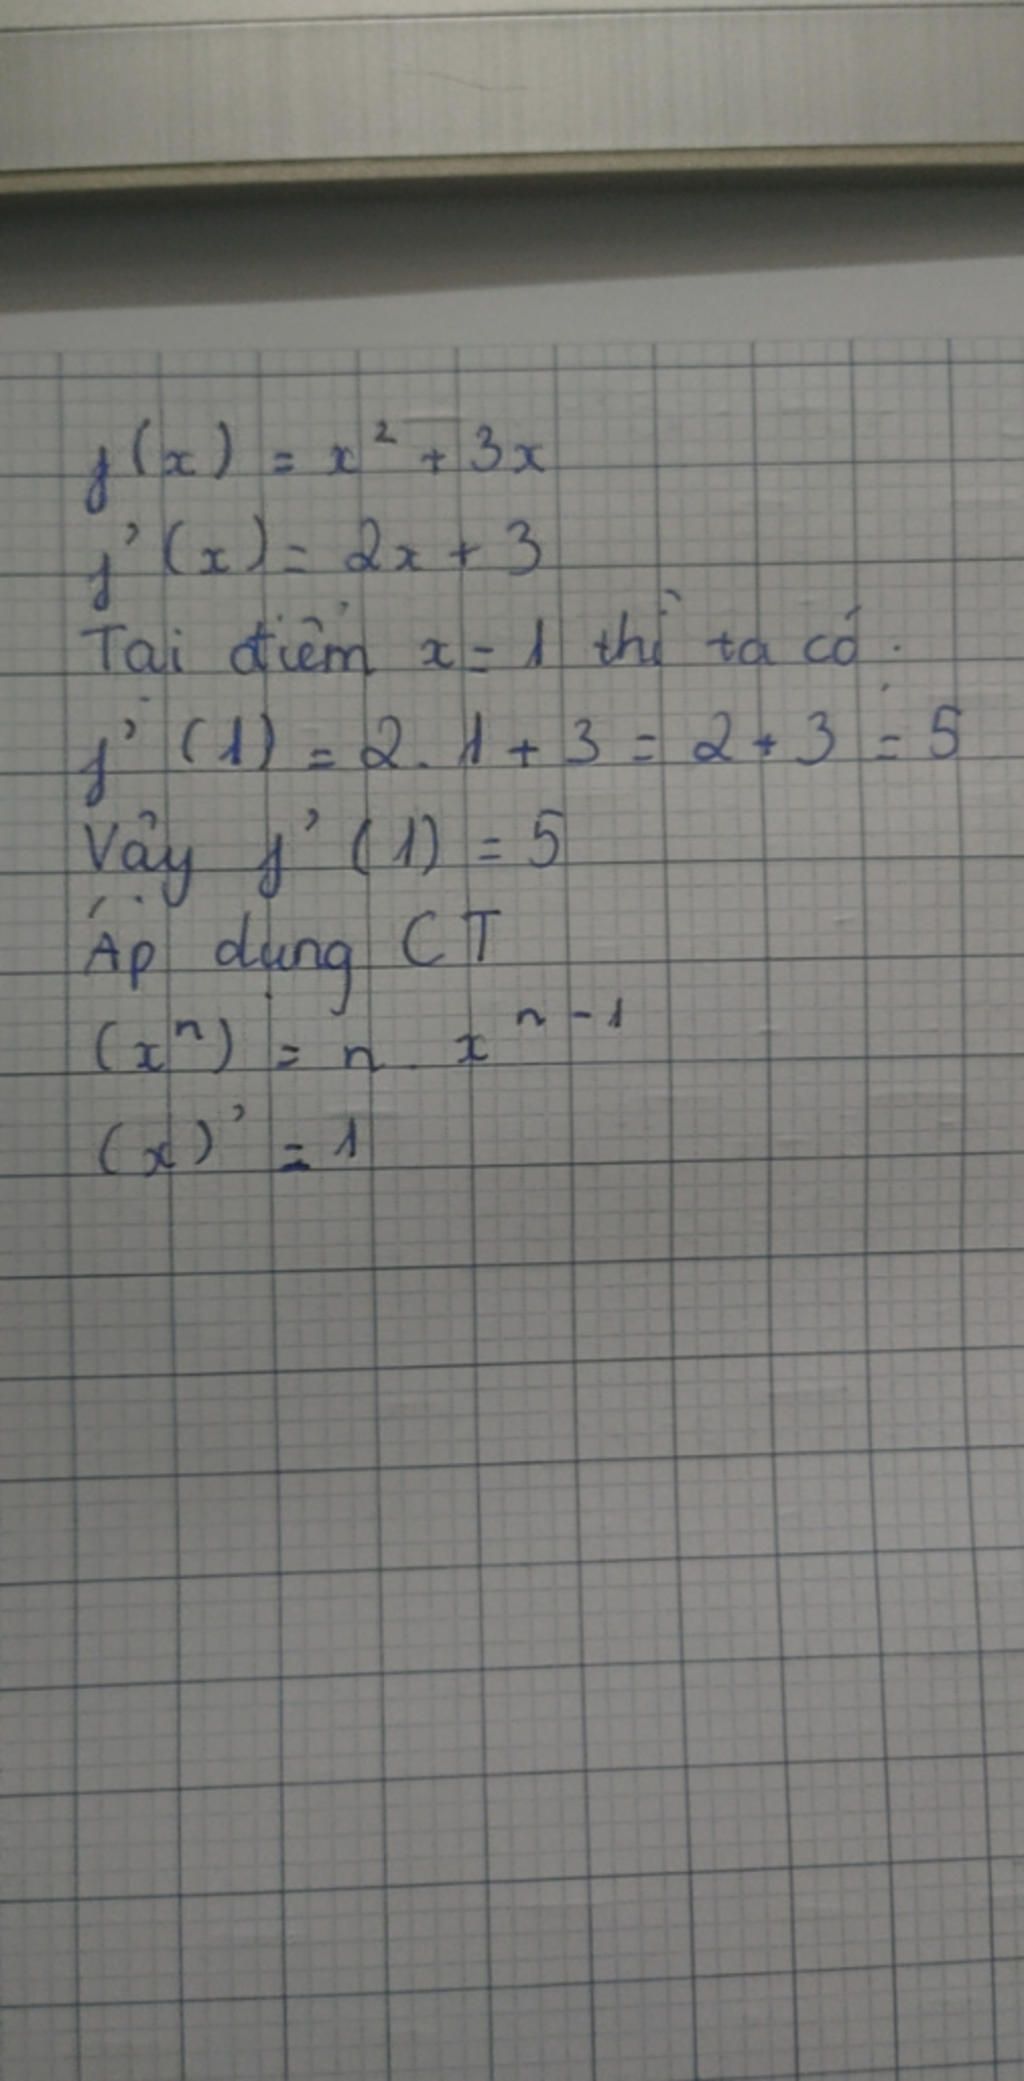 f(x) = x² + 3x
f'(x) = 2x + 3
Tại điểm x = 1 thì ta có:
f'(1) = 2 . 1 + 3 = 2 + 3 = 5
Vậy f'(1) = 5
Áp dụng CT
(xⁿ) = n . xⁿ⁻¹
(x)' = 1